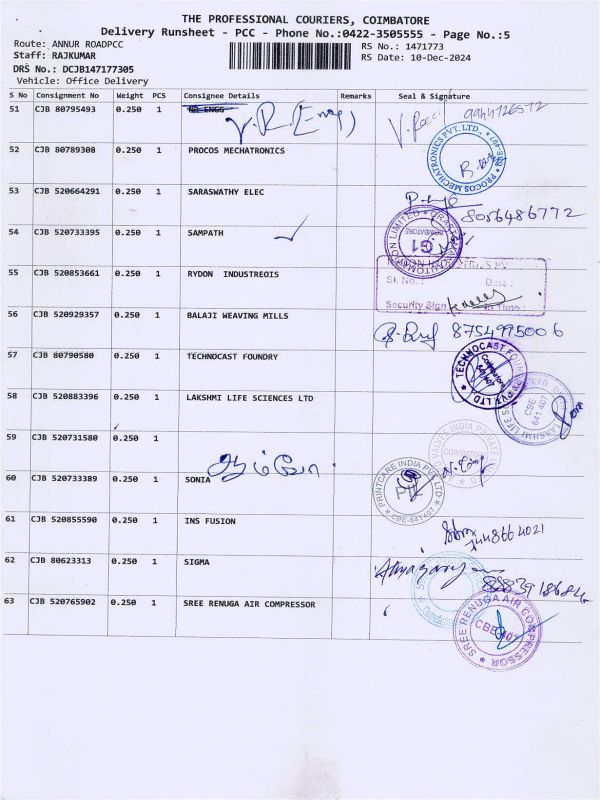 THE PROFESSIONAL COURIERS, COIMBATORE
Delivery Runsheet - PCC - Phone No.:0422-3505555 - Page No.:5
Route: ANNUR ROADPCC
RS No.: 1471773
Staff: RAJKUMAR
RS Date: 10-Dec-2024
DRS No.: DCJB147177305
Vehicle: Office Delivery
S No Consignment No Weight PCS Consignee Details Remarks Seal & Signature
51 CJB 80795493 0.250 1 V.R (Engg)
52 CJB 80789308 0.250 1 PROCOS MECHATRONICS
PROCOS MECHATRONICS PVT. LTD.,
53 CJB 520664291 0.250 1 SARASWATHY ELEC
8056486772
54 CJB 520733395 0.250 1 SAMPATH
G1
55 CJB 520853661 0.250 1 RYDON INDUSTREOIS
Sl. No.: Date:
Security Sign In Time:
56 CJB 520929357 0.250 1 BALAJI WEAVING MILLS
8754995006
57 CJB 80790580 0.250 1 TECHNOCAST FOUNDRY
TECHNOCAST FOUNDRY PVT LTD
Coimbatore
641 407
58 CJB 520883396 0.250 1 LAKSHMI LIFE SCIENCES LTD
CBE
641 407
59 CJB 520731580 0.250 1
60 CJB 520733389 0.250 1 SONIA
PRINTCARE INDIA PVT. LTD
PIL
CBE-641407
61 CJB 520855590 0.250 1 INS FUSION
7448664021
62 CJB 80623313 0.250 1 SIGMA
63 CJB 520765902 0.250 1 SREE RENUGA AIR COMPRESSOR
SREE RENUGA AIR COMPRESSOR